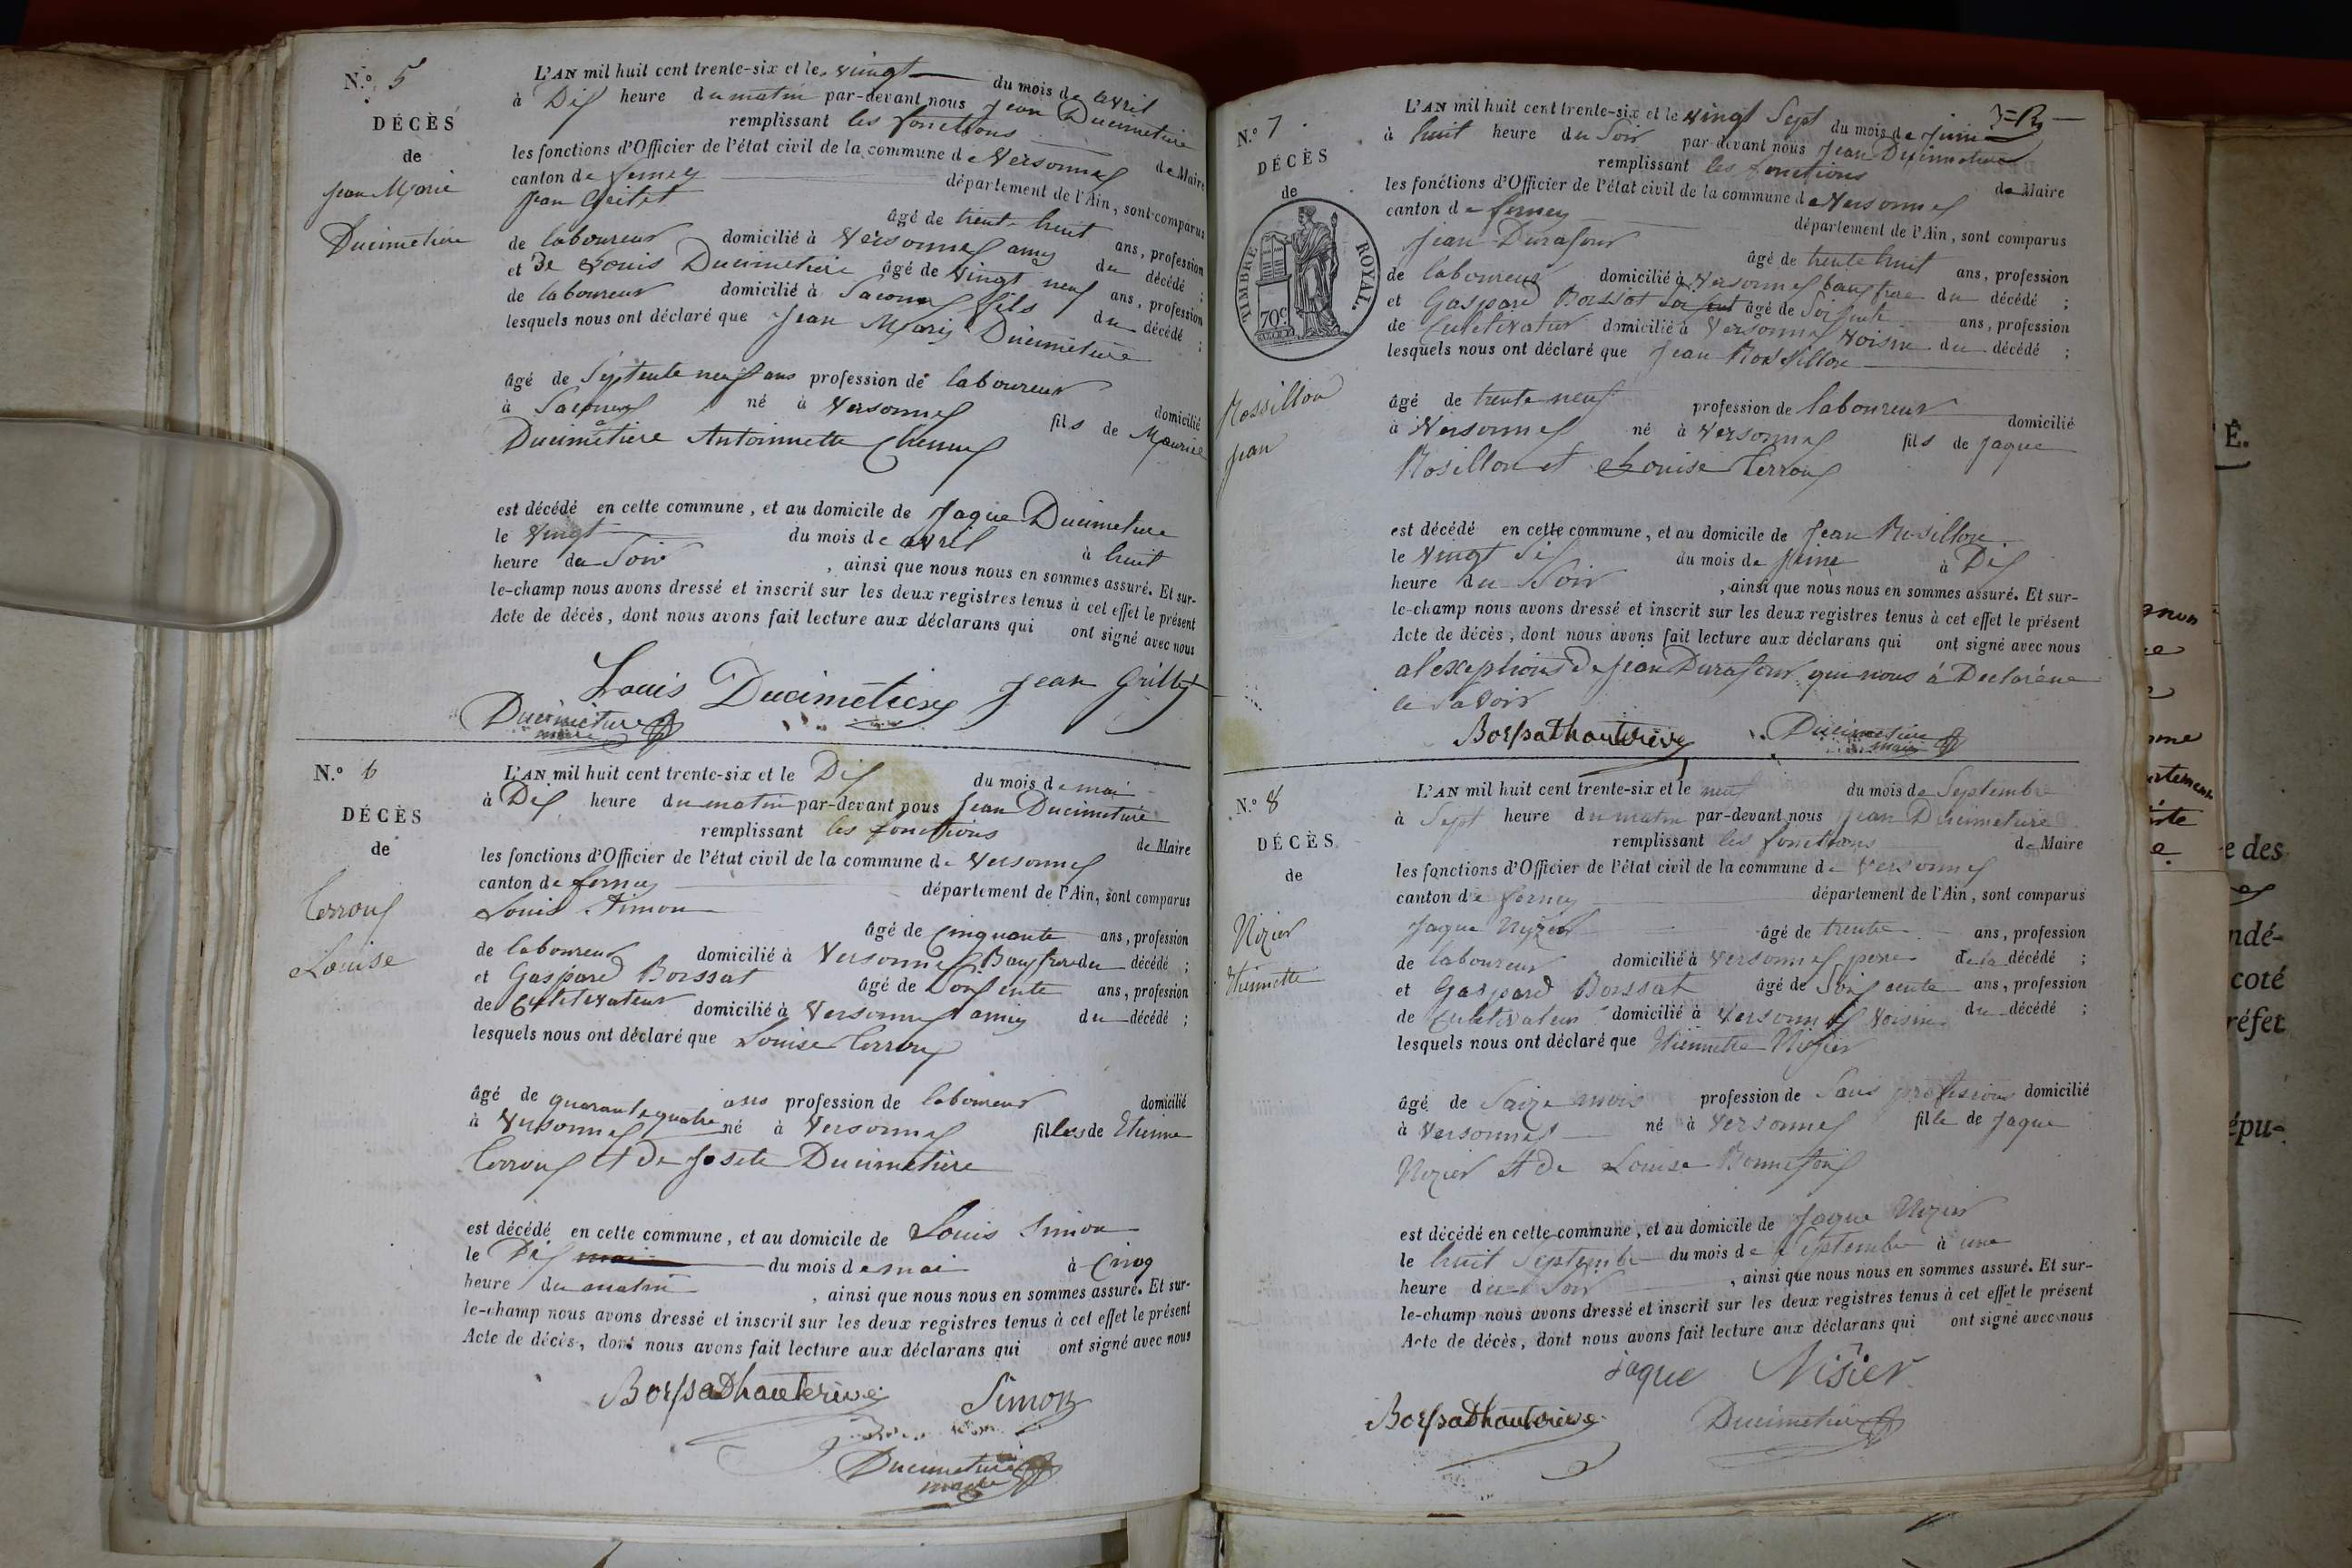 N.° 5
DÉCÈS
de
Jean Marie
Ducimetière
L'AN mil huit cent trente-six et le vingt du mois de avril
à Dix heure du matin par-devant nous Jean Ducimetière
remplissant les fonctions de Maire
les fonctions d'Officier de l'état civil de la commune de Versonnex
canton de ferney département de l'Ain, sont comparus
Jean Grilet âgé de trent-huit ans, profession
de laboureur domicilié à Versonnex amy du décédé ;
et de Louis Ducimetiere âgé de vingt neuf ans, profession
de laboureur domicilié à Saconex fils du décédé ;
lesquels nous ont déclaré que Jean Marie Ducimetière
âgé de Septente neuf ans profession de laboureur domicilié
à Saconex né à Versonnex fils de Maurice
Ducimetiere Antoinnette Chenux
est décédé en cette commune, et au domicile de Jaque Ducimetiere
le vingt du mois de avril à huit
heure du Soir , ainsi que nous nous en sommes assuré. Et sur-
le-champ nous avons dressé et inscrit sur les deux registres tenus à cet effet le présent
Acte de décès, dont nous avons fait lecture aux déclarans qui ont signé avec nous
Louis Ducimetiere Jean Grillet
Ducimetiere
maire
N.° 6
DÉCÈS
de
Terroux
Louise
L'AN mil huit cent trente-six et le Dix du mois de mai
à Dix heure du matin par-devant nous Jean Ducimetiere
remplissant les fonctions de Maire
les fonctions d'Officier de l'état civil de la commune de Versonnex
canton de ferney département de l'Ain, sont comparus
Louis Simon âgé de Cinquante ans, profession
de laboureur domicilié à Versonnex Baufrere du décédé ;
et Gaspard Borssat âgé de Soixente ans, profession
de Cultivateur domicilié à Versonnex amy du décédé ;
lesquels nous ont déclaré que Louise Terroux
âgé de quarante quatre ans profession de laboureur domicilié
à Versonnex né à Versonnex filles de Etienne
Terroux et de Josete Ducimetière
est décédé en cette commune, et au domicile de Louis Simon
le Dix mai du mois de mai à Cinq
heure du matin , ainsi que nous nous en sommes assuré. Et sur-
le-champ nous avons dressé et inscrit sur les deux registres tenus à cet effet le présent
Acte de décès, dont nous avons fait lecture aux déclarans qui ont signé avec nous
BorssaDhauterive Simon
Ducimetiere
maire
N.° 7
DÉCÈS
de
TIMBRE ROYAL.
70c
Rossillon
Jean
L'AN mil huit cent trente-six et le vingt Sept du mois de Juin
à huit heure du Soir par-devant nous Jean Ducimetiere
remplissant les fonctions de Maire
les fonctions d'Officier de l'état civil de la commune de Versonnex
canton de ferney département de l'Ain, sont comparus
Jean Durafour âgé de trente huit ans, profession
de laboureur domicilié à Versonnex baufrere du décédé ;
et Gaspard Borssat âgé de Soixente ans, profession
de Cultivatur domicilié à Versonnex Voisin du décédé ;
lesquels nous ont déclaré que Jean Rossillon
âgé de trente neuf profession de laboureur domicilié
à Versonnex né à Versonnex fils de Jaque
Rosillon et Louise Terroux
est décédé en cette commune, et au domicile de Jean Rosillon
le vingt Six du mois de Juine à Dix
heure du Soir , ainsi que nous nous en sommes assuré. Et sur-
le-champ nous avons dressé et inscrit sur les deux registres tenus à cet effet le présent
Acte de décès, dont nous avons fait lecture aux déclarans qui ont signé avec nous
a l'exeptions de Jean Durafour qui nous à Declaréne
le savoir
BorssatDhauterive Ducimetiere
maire
N.° 8
DÉCÈS
de
Nizier
Etiennette
L'AN mil huit cent trente-six et le neuf du mois de Septembre
à Sept heure du matin par-devant nous Jean Ducimetiere
remplissant les fonctions de Maire
les fonctions d'Officier de l'état civil de la commune de Versonnex
canton de ferney département de l'Ain, sont comparus
Jaque Nizier âgé de trente ans, profession
de laboureur domicilié à Versonnex pere de la décédé ;
et Gaspard Borssat âgé de Soixcente ans, profession
de Cultivateur domicilié à Versonnex Voisin du décédé ;
lesquels nous ont déclaré que Etiennette Nizier
âgé de Saize mois profession de Sans profession domicilié
à Versonnex né à Versonnex fille de Jaque
Nizier et de Louise Bonnefoix
est décédé en cette commune, et au domicile de Jaque Nizier
le huit Septembre du mois de Septembre à une
heure du Soir , ainsi que nous nous en sommes assuré. Et sur-
le-champ nous avons dressé et inscrit sur les deux registres tenus à cet effet le présent
Acte de décès, dont nous avons fait lecture aux déclarans qui ont signé avec nous
jaque Nisier
BorssaDhauterive Ducimetiere
É.
e des
ndé-
coté
réfet
épu-